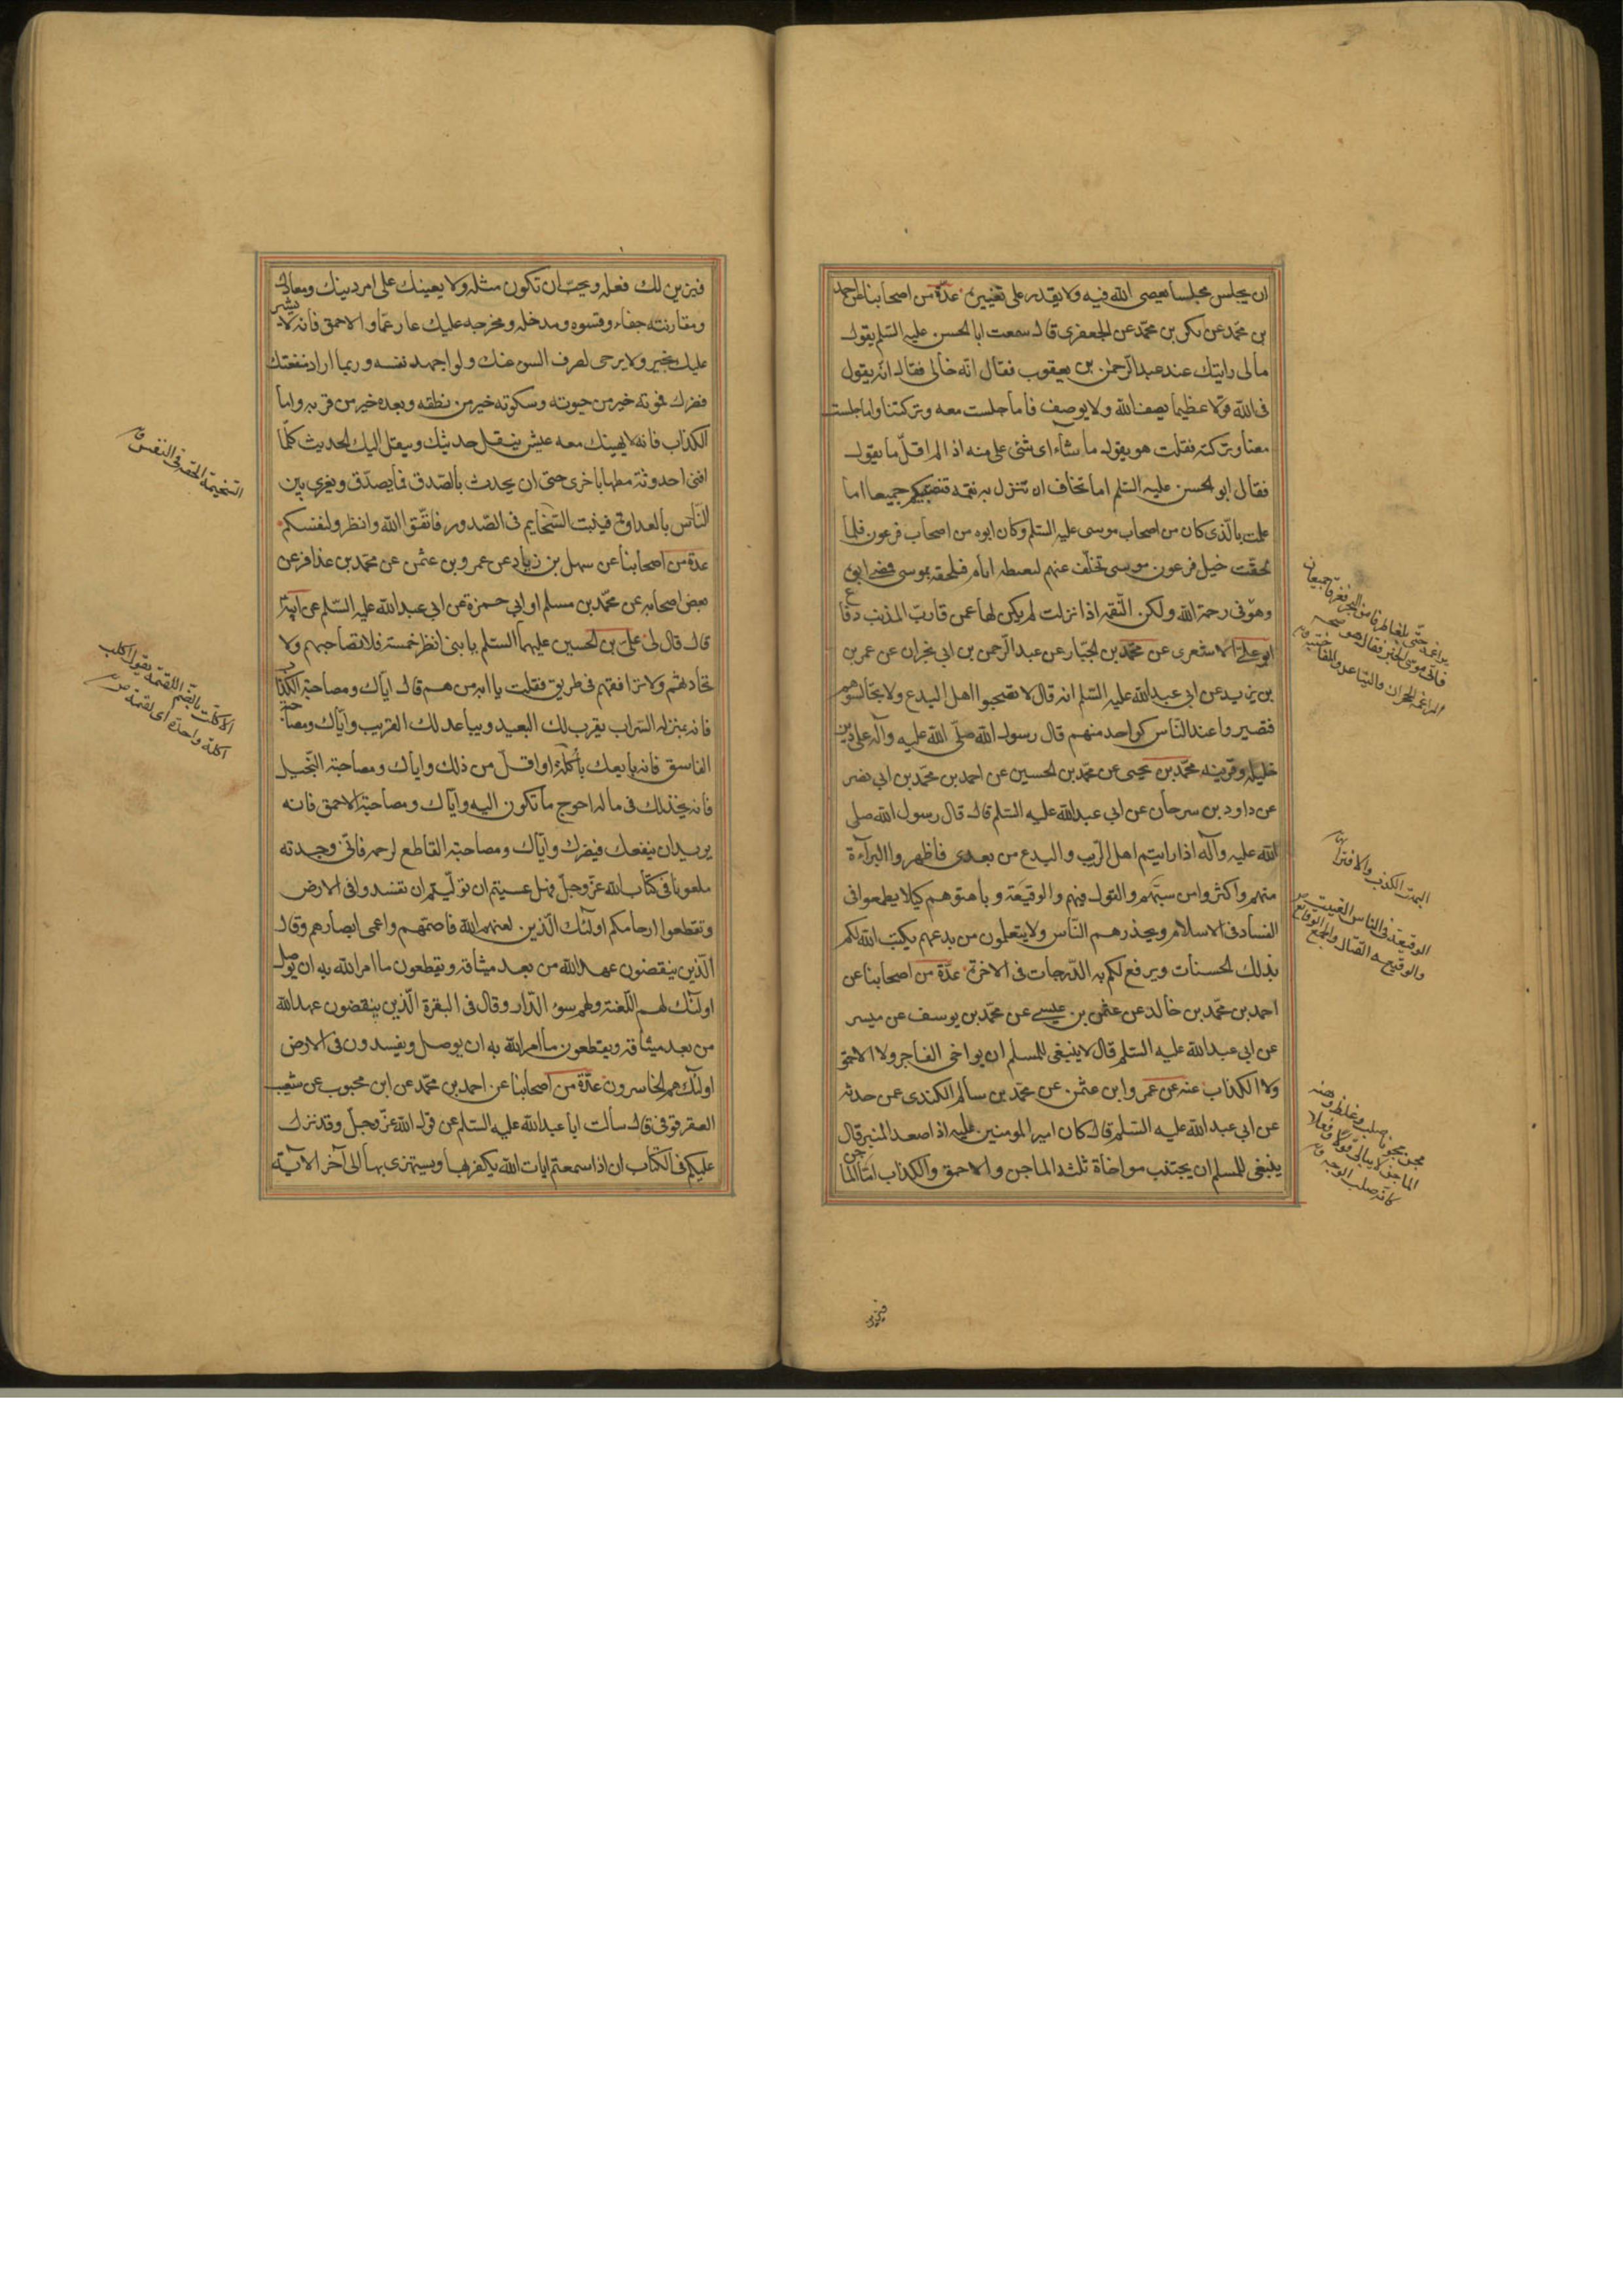 ان يجلس مجلسا يعصى الله فيه ولا يقدر على تغييره عدة من اصحابنا عن احمد
بن محمد عن بكر بن محمد عن الجعفرى قال سمعت ابا الحسن عليه السلم يقول
ما لى رايتك عند عبد الرحمن بن يعقوب فقال انه خالى فقال انه يقول
فى الله قولا عظيما يصف الله ولا يوصف فاما جلست معه وتركتنا واما جلست
معنا وتركته فقلت هو يقول ما شاء اى شئى على منه اذا لم اقل ما يقول
فقال ابو الحسن عليه السلم اما تخاف ان تنزل به نقمة فتصيبكم جميعا اما
علمت بالذى كان من اصحاب موسى عليه السلم وكان ابوه من اصحاب فرعون فلما
لحقت خيل فرعون موسى تخلف عنهم ليعظ اباه فيلحقه بموسى فمضى ابوه
وهو فى رحمة الله ولكن النقمة اذا نزلت لم يكن لها عمن قارب المذنب دفاع
ابو على الاشعرى عن محمد بن الجبار عن عبد الرحمن بن ابى نجران عن عمر بن
بن يزيد عن ابى عبد الله عليه السلم انه قال لا تصحبوا اهل البدع ولا تجالسوهم
فتصيروا عند الناس كواحد منهم قال رسول الله صلى الله عليه وآله المرء على دين
خليله وقرينه محمد بن يحيى عن محمد بن الحسين عن احمد بن محمد بن ابى نصر
عن داود بن سرحان عن ابى عبد الله عليه السلم قال قال رسول الله صلى
الله عليه وآله اذا رايتم اهل الريب والبدع من بعدى فاظهروا البرآءة
منهم واكثروا من سبهم والقول فيهم والوقيعة وباهتوهم كيلا يطمعوا فى
الفساد فى الاسلام ويحذرهم الناس ولا يتعلمون من بدعهم يكتب الله لكم
بذلك الحسنات ويرفع لكم به الدرجات فى الاخرة عدة من اصحابنا عن
احمد بن محمد بن خالد عن عثمن بن عيسى عن محمد بن يوسف عن ميسر
عن ابى عبد الله عليه السلم قال لا ينبغى للمسلم ان يواخى الفاجر ولا الاحمق
ولا الكذاب عنه عن عمرو ابن عثمن عن محمد بن سالم الكندى عمن حدثه
عن ابى عبد الله عليه السلم قال كان امير المومنين عليه اذا صعد المنبر قال
ينبغى للمسلم ان يجتنب مواخاة ثلثة الماجن والاحمق والكذاب اما الماجن
البهت الكذب والافتراء
الوقيعة فى الناس الغيبة
فيزين
فيزين لك فعله ويحب ان تكون مثله ولا يعينك على امر دينك ومعادك
ومقارنته جفاء وقسوه ومدخله ومخرجه عليك عار عما والاحمق فانه لا يشير
عليك بخير ولا يرجى لصرف السوء عنك ولو اجهد نفسه وربما اراد منفعتك
فضرك فموته خير من حيوته وسكوته خير من نطقه وبعده خير من قربه واما
الكذاب فانه لا يهينك معه عيش ينقل حديثك وينقل اليك الحديث كلما
افنى احدوثة مطها باخرى حتى ان يحدث بالصدق فما يصدق ويغرى بين
الناس بالعداوة فينبت السخايم فى الصدور فاتقوا الله وانظروا لانفسكم
عدة من اصحابنا عن سهل بن زياد عن عمرو بن عثمن عن محمد بن عذافر عن
بعض اصحابه عن محمد بن مسلم او ابى حمزة عن ابى عبد الله عليه السلم عن ابيه
قال قال لى على بن الحسين عليهما السلم يا بنى انظر خمسة فلا تصاحبهم ولا
تحادثهم ولا ترافقهم فى طريق فقلت يا ابه من هم قال اياك ومصاحبة الكذاب
فانه بمنزلة السراب يقرب لك البعيد ويباعد لك القريب واياك ومصاحبة
الفاسق فانه بايعك باكلة او اقل من ذلك واياك ومصاحبة البخيل
فانه يخذلك فى ماله احوج ما تكون اليه واياك ومصاحبة الاحمق فانه
يريد ان ينفعك فيضرك واياك ومصاحبة القاطع لرحمه فانى وجدته
ملعونا فى كتاب الله عز وجل فهل عسيتم ان توليتم ان تفسدوا فى الارض
وتقطعوا ارحامكم اولئك الذين لعنهم الله فاصمهم واعمى ابصارهم وقال
الذين ينقضون عهد الله من بعد ميثاقه ويقطعون ما امر الله به ان يوصل
اولئك لهم اللعنة ولهم سوء الدار وقال فى البقرة الذين ينقضون عهد الله
من بعد ميثاقه ويقطعون ما امر الله به ان يوصل ويفسدون فى الارض
اولئك هم الخاسرون عدة من اصحابنا عن احمد بن محمد عن ابن محبوب عن شعيب
العقرقوفى قال سألت ابا عبد الله عليه السلم عن قول الله عز وجل وقد نزل
عليكم فى الكتاب ان اذا سمعتم ايات الله يكفر بها ويستهزى بها الى آخر الآية
السخيمة الحقد فى النفس
الاكلة بالضم اللقمة
اكلة واحدة اى لقمة